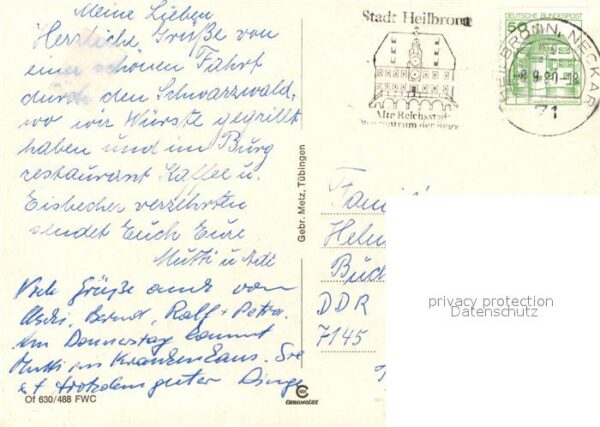 Meine Lieben
Herzliche Grüße von
einer schönen Fahrt
durch den Schwarzwald,
wo wir Würste gegrillt
haben und im Burg
restaurant Kaffee u.
Eisbecher verzehrten
sendet Euch Eure
Mutti u.
Viele Grüße auch von
Bernd, Ralf + Petra.
Am Donnerstag kommt
Mutti ins Krankenhaus. Sie
ist trotzdem guter Dinge
Of 630/488 FWC
Gebr. Metz, Tübingen
CHROMOLUX
Stadt Heilbronn
Alte Reichsstadt
DEUTSCHE BUNDESPOST
50
HEILBRONN, NECKAR
71
DDR
7145
privacy protection
Datenschutz